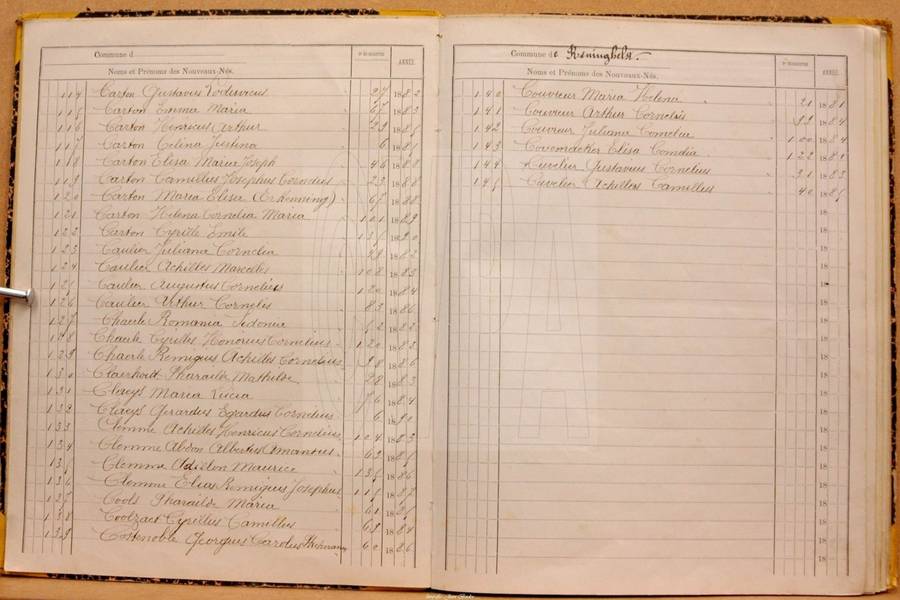 Commune d
Noms et Prénoms des Nouveaux-Nés.
ANNÉE
114 Carton Gustavus 27 1882
115 Carton Emma Maria 67 1883
116 Carton Henricus Arthur 1885
117 Carton Celina Justina 6 1881
118 Carton Elisa Maria Joseph 46 1888
119 Carton Camillius Josephus Cornelius 23 1888
120 Carton Maria Elisa (Erkenning) 67 1888
121 Carton Helena Cornelia Maria 101 1889
122 Carton Cyrille Emile 1890
123 Caulier Juliana Cornelia 1882
124 Caulier Achilles Marcelles 108 1883
125 Caulier Augustus Cornelius 120 1884
126 Caulier Arthur Cornelis 83 1886
127 Chaerle Romania Sidonie 62 1882
128 Chaerle Cyrilles Honorius Cornelius 120 1883
129 Chaerle Remigius Achilles Cornelius 98 1886
130 Claerhoudt Pharailde Mathilde 28 1883
131 Claeys Maria Lucia 76 1884
132 Claeys Gerardus Eduardus Cornelius 6 1890
133 Clemme Achilles Henricus Cornelius 104 1883
134 Clemme Abdon Albertus Amantius 63 1885
135 Clemme Maurice 1886
136 Clemme Elias Remigius Josephus 115 1887
137 Cools Pharailde Maria 61 1885
138 Coolzaet Cyrillus Camillus 68 1884
139 Costenoble Georgius Carolus 60 1886
Commune de Reninghelst.
Noms et Prénoms des Nouveaux-Nés.
ANNÉE
140 Couvreur Maria Helena 21 1881
141 Couvreur Arthur Cornelis 1884
142 Couvreur Juliana Cornelia 100 1884
143 Elisa 122 1889
144 Cuvelier Gustavius Cornelius 31 1883
145 Cuvelier Achilles Camilles 40 1885